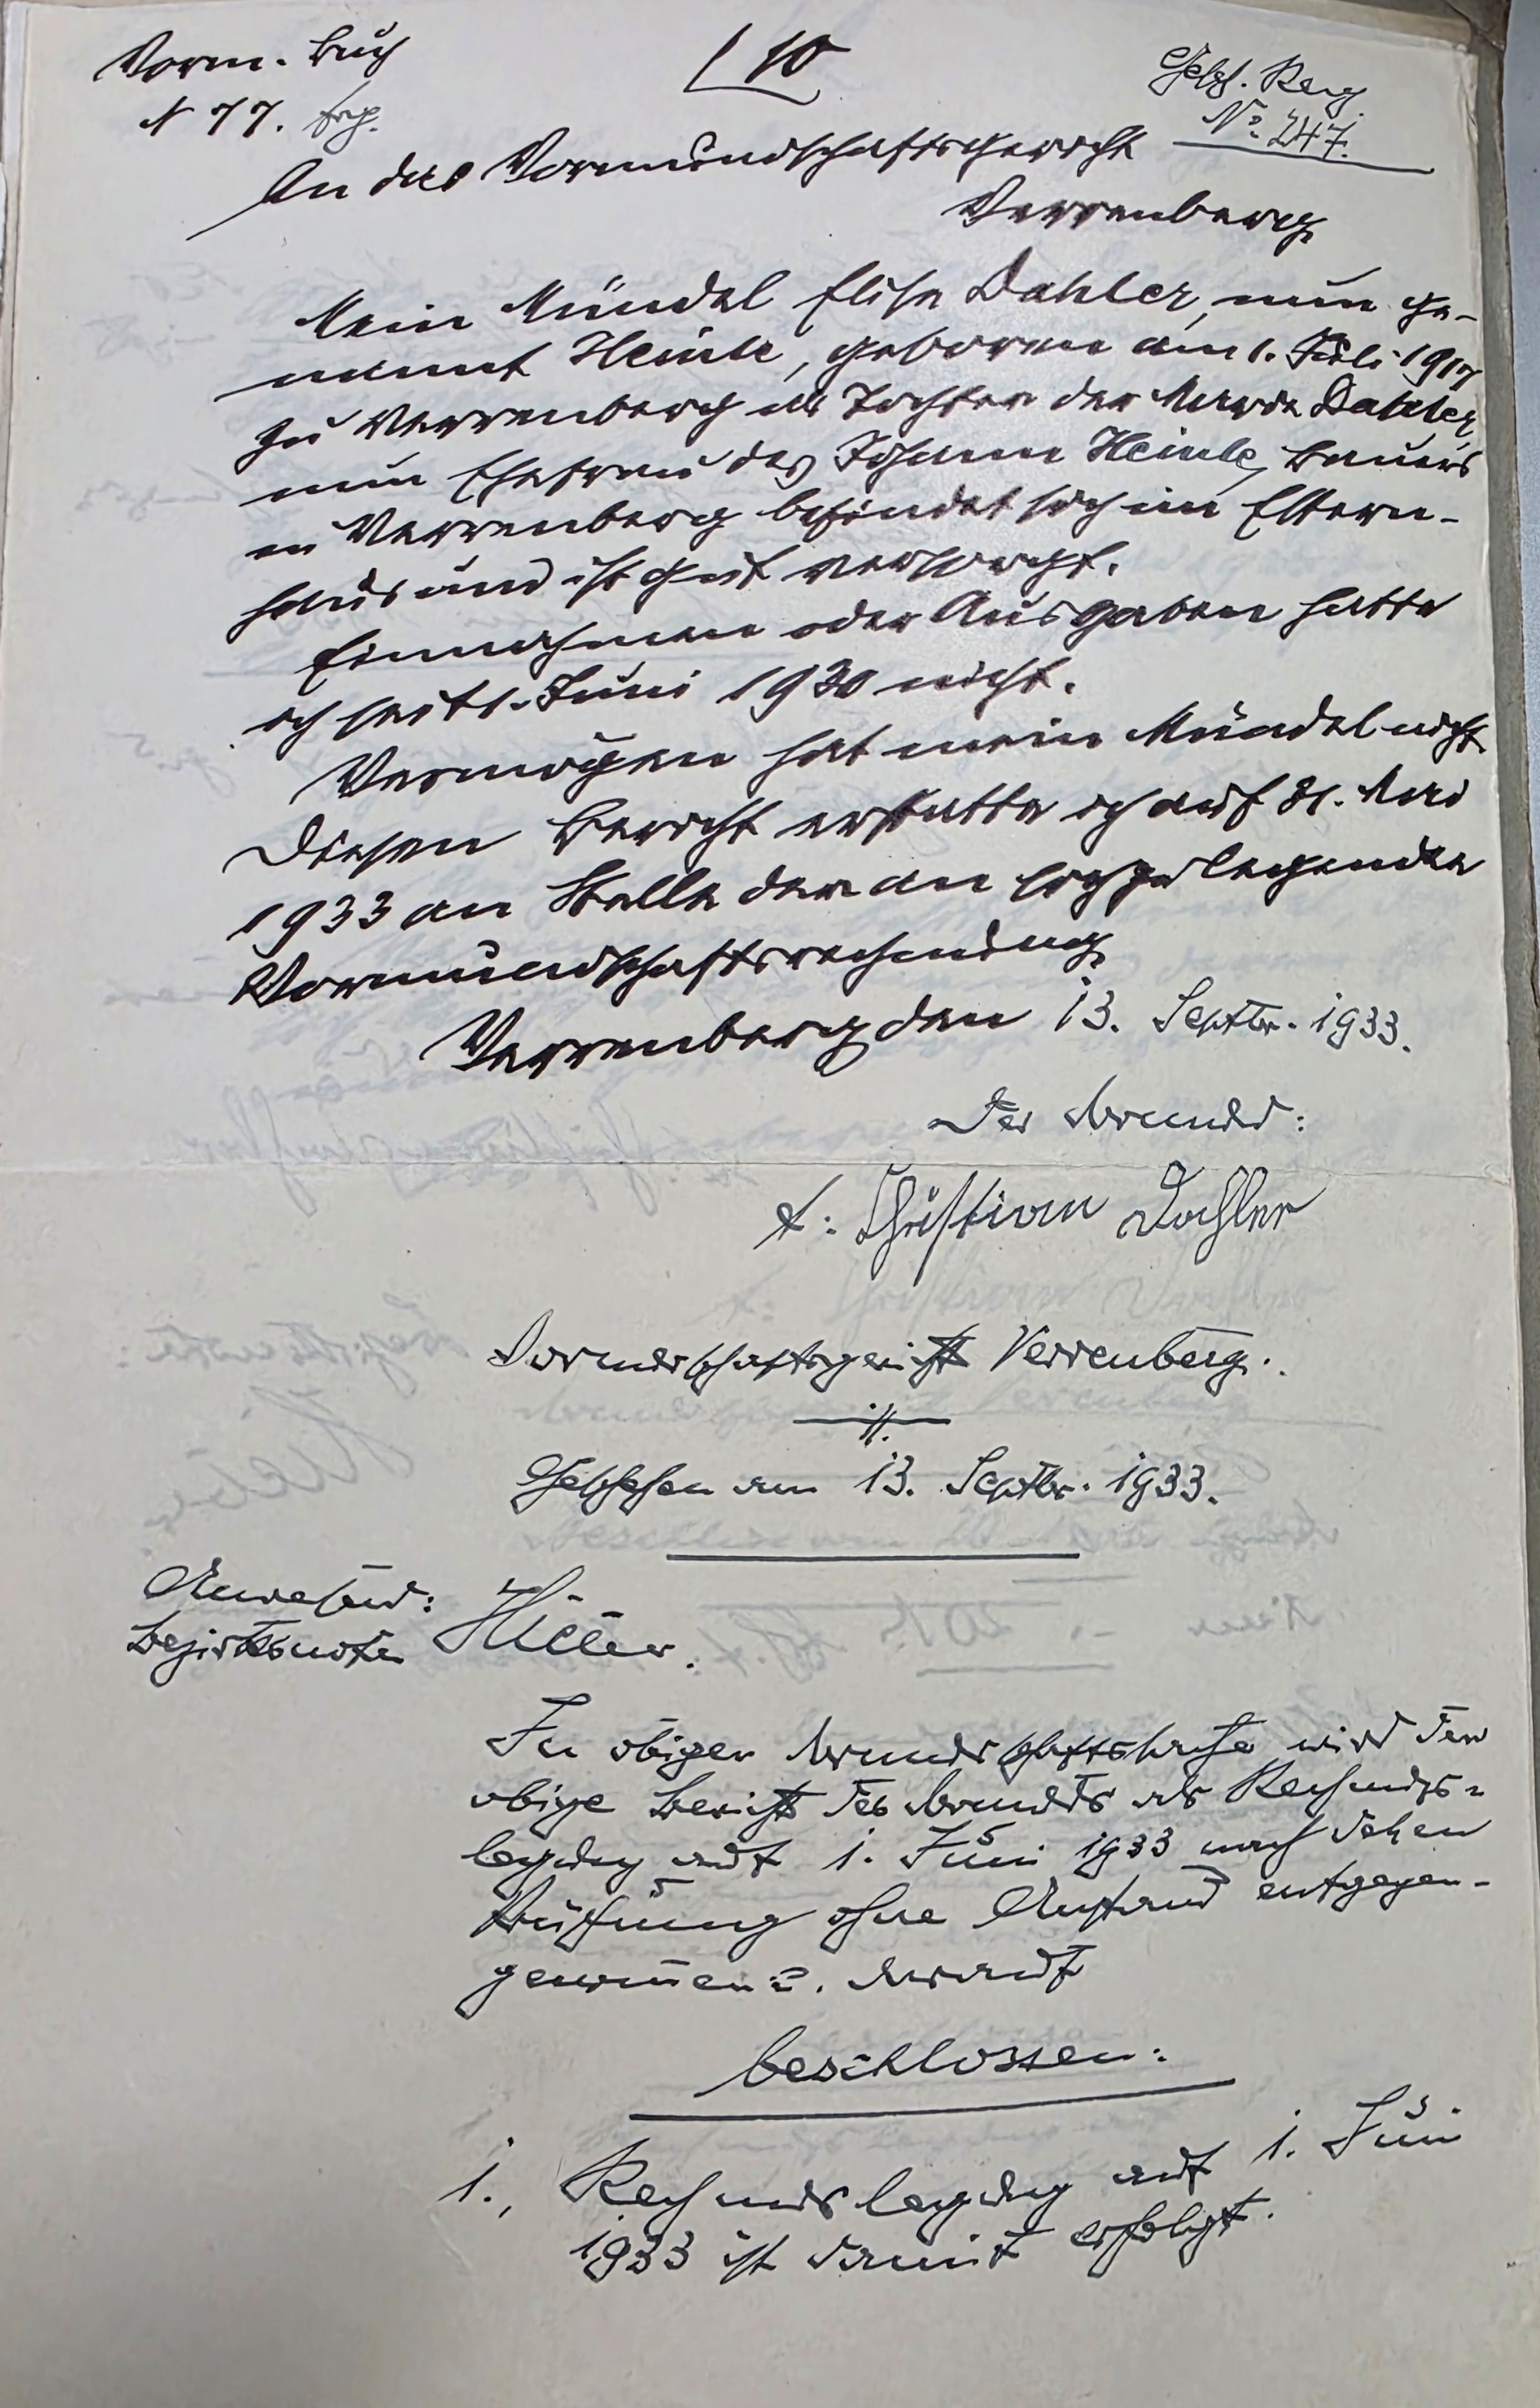 Vorm. Buch
N 77.
10
Gesch. Reg.
No. 247.
An das Vormundschaftsgericht
Verrenberg
Mein Mündel Elise Dahler, nun ge-
nannt Heinle, geboren am 1. Juli 1917
zu Verrenberg als Tochter der Maria Dahler,
nun Ehefrau des Johann Heinle, Bauers
in Verrenberg befindet sich im Eltern-
haus und ist gut versorgt.
Einnahmen oder Ausgaben hatte
ich seit 1. Juni 1930 nicht.
Vermögen hat mein Mündel nicht
Diesen Bericht erstatte ich auf 31. Mai
1933 an Stelle der an sich zu legenden
Vormundschaftsrechnung
Verrenberg den 13. Septbr. 1933.
Der Vormund:
t: Christian Dahler
Vormundschaftsgericht Verrenberg.
Geschehen am 13. Septbr. 1933.
Anwesend:
Bezirksnotar Hiller.
In obiger Vormundschaftssache wird der
obige Bericht des Vormunds als Rechnungs-
legung auf 1. Juni 1933 nach dessen
Prüfung ohne Anstand entgegen-
genommen u. darauf
beschlossen:
1., Rechnungslegung auf 1. Juni
1933 ist damit erfolgt.